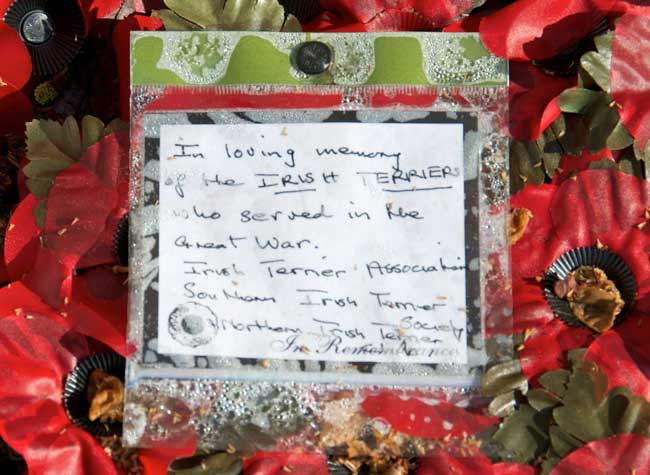 In loving memory
of the IRISH TERRIERS
who served in the
Great War.
Irish Terrier Association
Southern Irish Terrier
Society
Northern Irish Terrier
In Remembrance